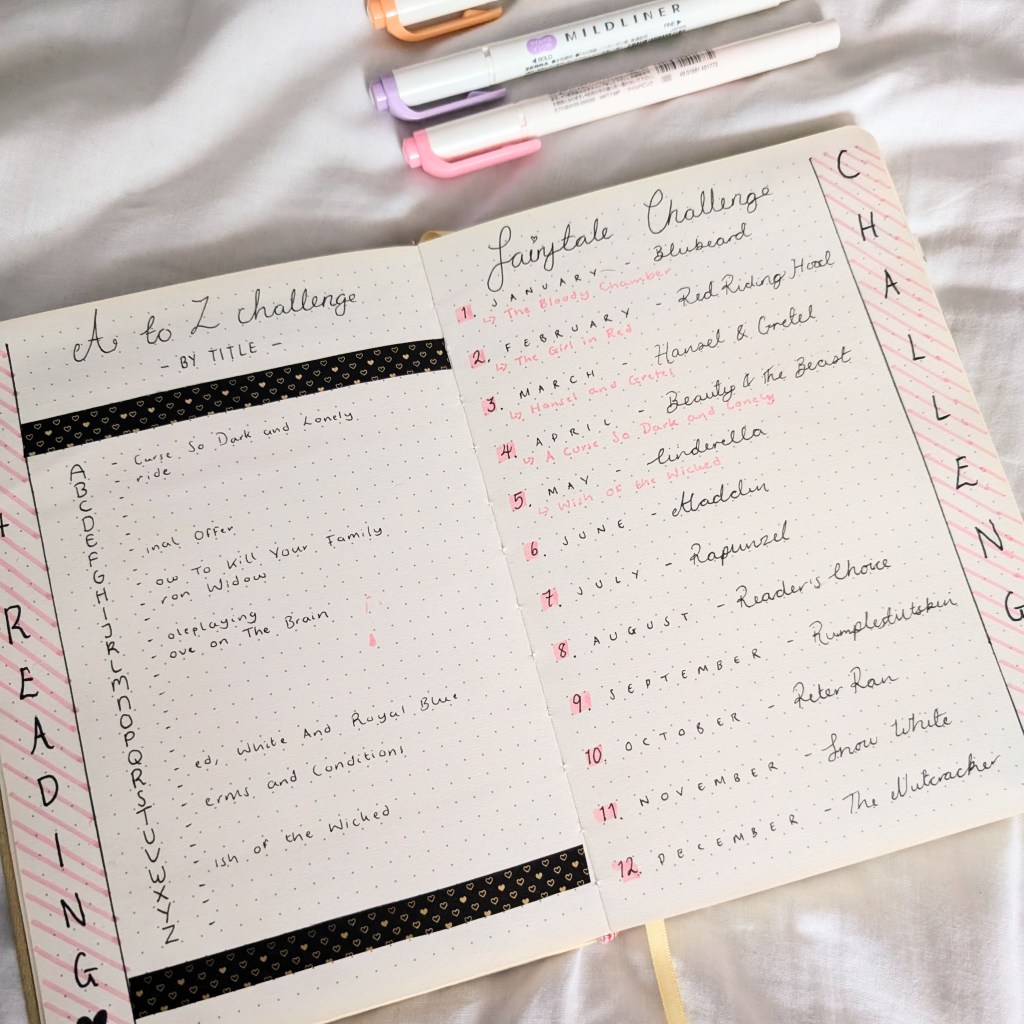 MILDLINER
BOLD
FINE
ZEBRA
A to Z challenge
- BY TITLE -
A - Curse So Dark and Lonely
B - ride
C -
D -
E -
F - inal Offer
G -
H - ow To Kill Your Family
I - ron Widow
J -
K - oleplaying
L - ove on The Brain
M -
N -
O -
P -
Q -
R - ed, White And Royal Blue
S -
T - erms and Conditions
U -
V -
W - ish of the Wicked
X -
Y -
Z -
READING
Fairytale Challenge
1. JANUARY - Blubeard
↳ The Bloody Chamber
2. FEBRUARY - Red Riding Hood
↳ The Girl in Red
3. MARCH - Hansel & Gretel
↳ Hansel and Gretel
4. APRIL - Beauty & The Beast
↳ A Curse So Dark and Lonely
5. MAY - Cinderella
↳ Wish of the Wicked
6. JUNE - Aladdin
7. JULY - Rapunzel
8. AUGUST - Reader's Choice
9. SEPTEMBER - Rumplestiltskin
10. OCTOBER - Peter Pan
11. NOVEMBER - Snow White
12. DECEMBER - The Nutcracker
CHALLENG